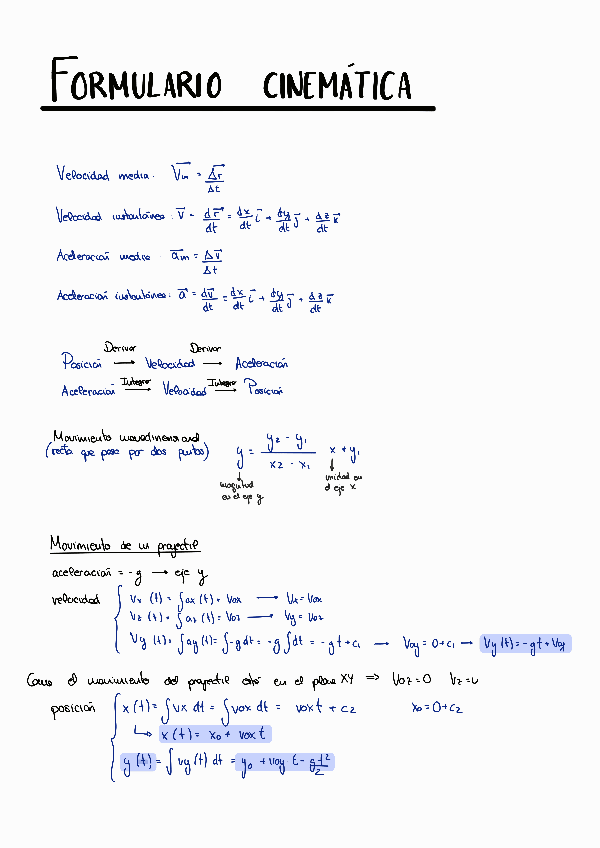 FORMULARIO CINEMÁTICA
Velocidad media: Vm = Δr / Δt
Velocidad instantánea: v = dr/dt = dx/dt i + dy/dt j + dz/dt k
Aceleración media: am = Δv / Δt
Aceleración instantánea: a = dv/dt = dx/dt i + dy/dt j + dz/dt k
Derivar Derivar
Posición → Velocidad → Aceleración
Integrar Integrar
Aceleración → Velocidad → Posición
Movimiento unidimensional
(recta que pasa por dos puntos) y = (y2 - y1) / (x2 - x1) x + y1
magnitud en el eje y
unidad en el eje x
Movimiento de un projectil
aceleración = -g → eje y
velocidad { Vx (t) = ∫ax (t) + vox → Vx = Vox
Vz (t) = ∫az (t) = Voz → Vy = Voz
Vy (t) = ∫ay (t) = ∫-g dt = -g ∫dt = -gt + c1 → Voy = 0 + c1 → Vy (t) = -gt + Voy
Como el movimiento del projectil está en el plano XY ⇒ Voz = 0 Vz = 0
posición { x (t) = ∫vx dt = ∫vox dt = vox t + c2 x0 = 0 + c2
↳ x (t) = x0 + vox t
y (t) = ∫vy (t) dt = y0 + voy t - gt²/2